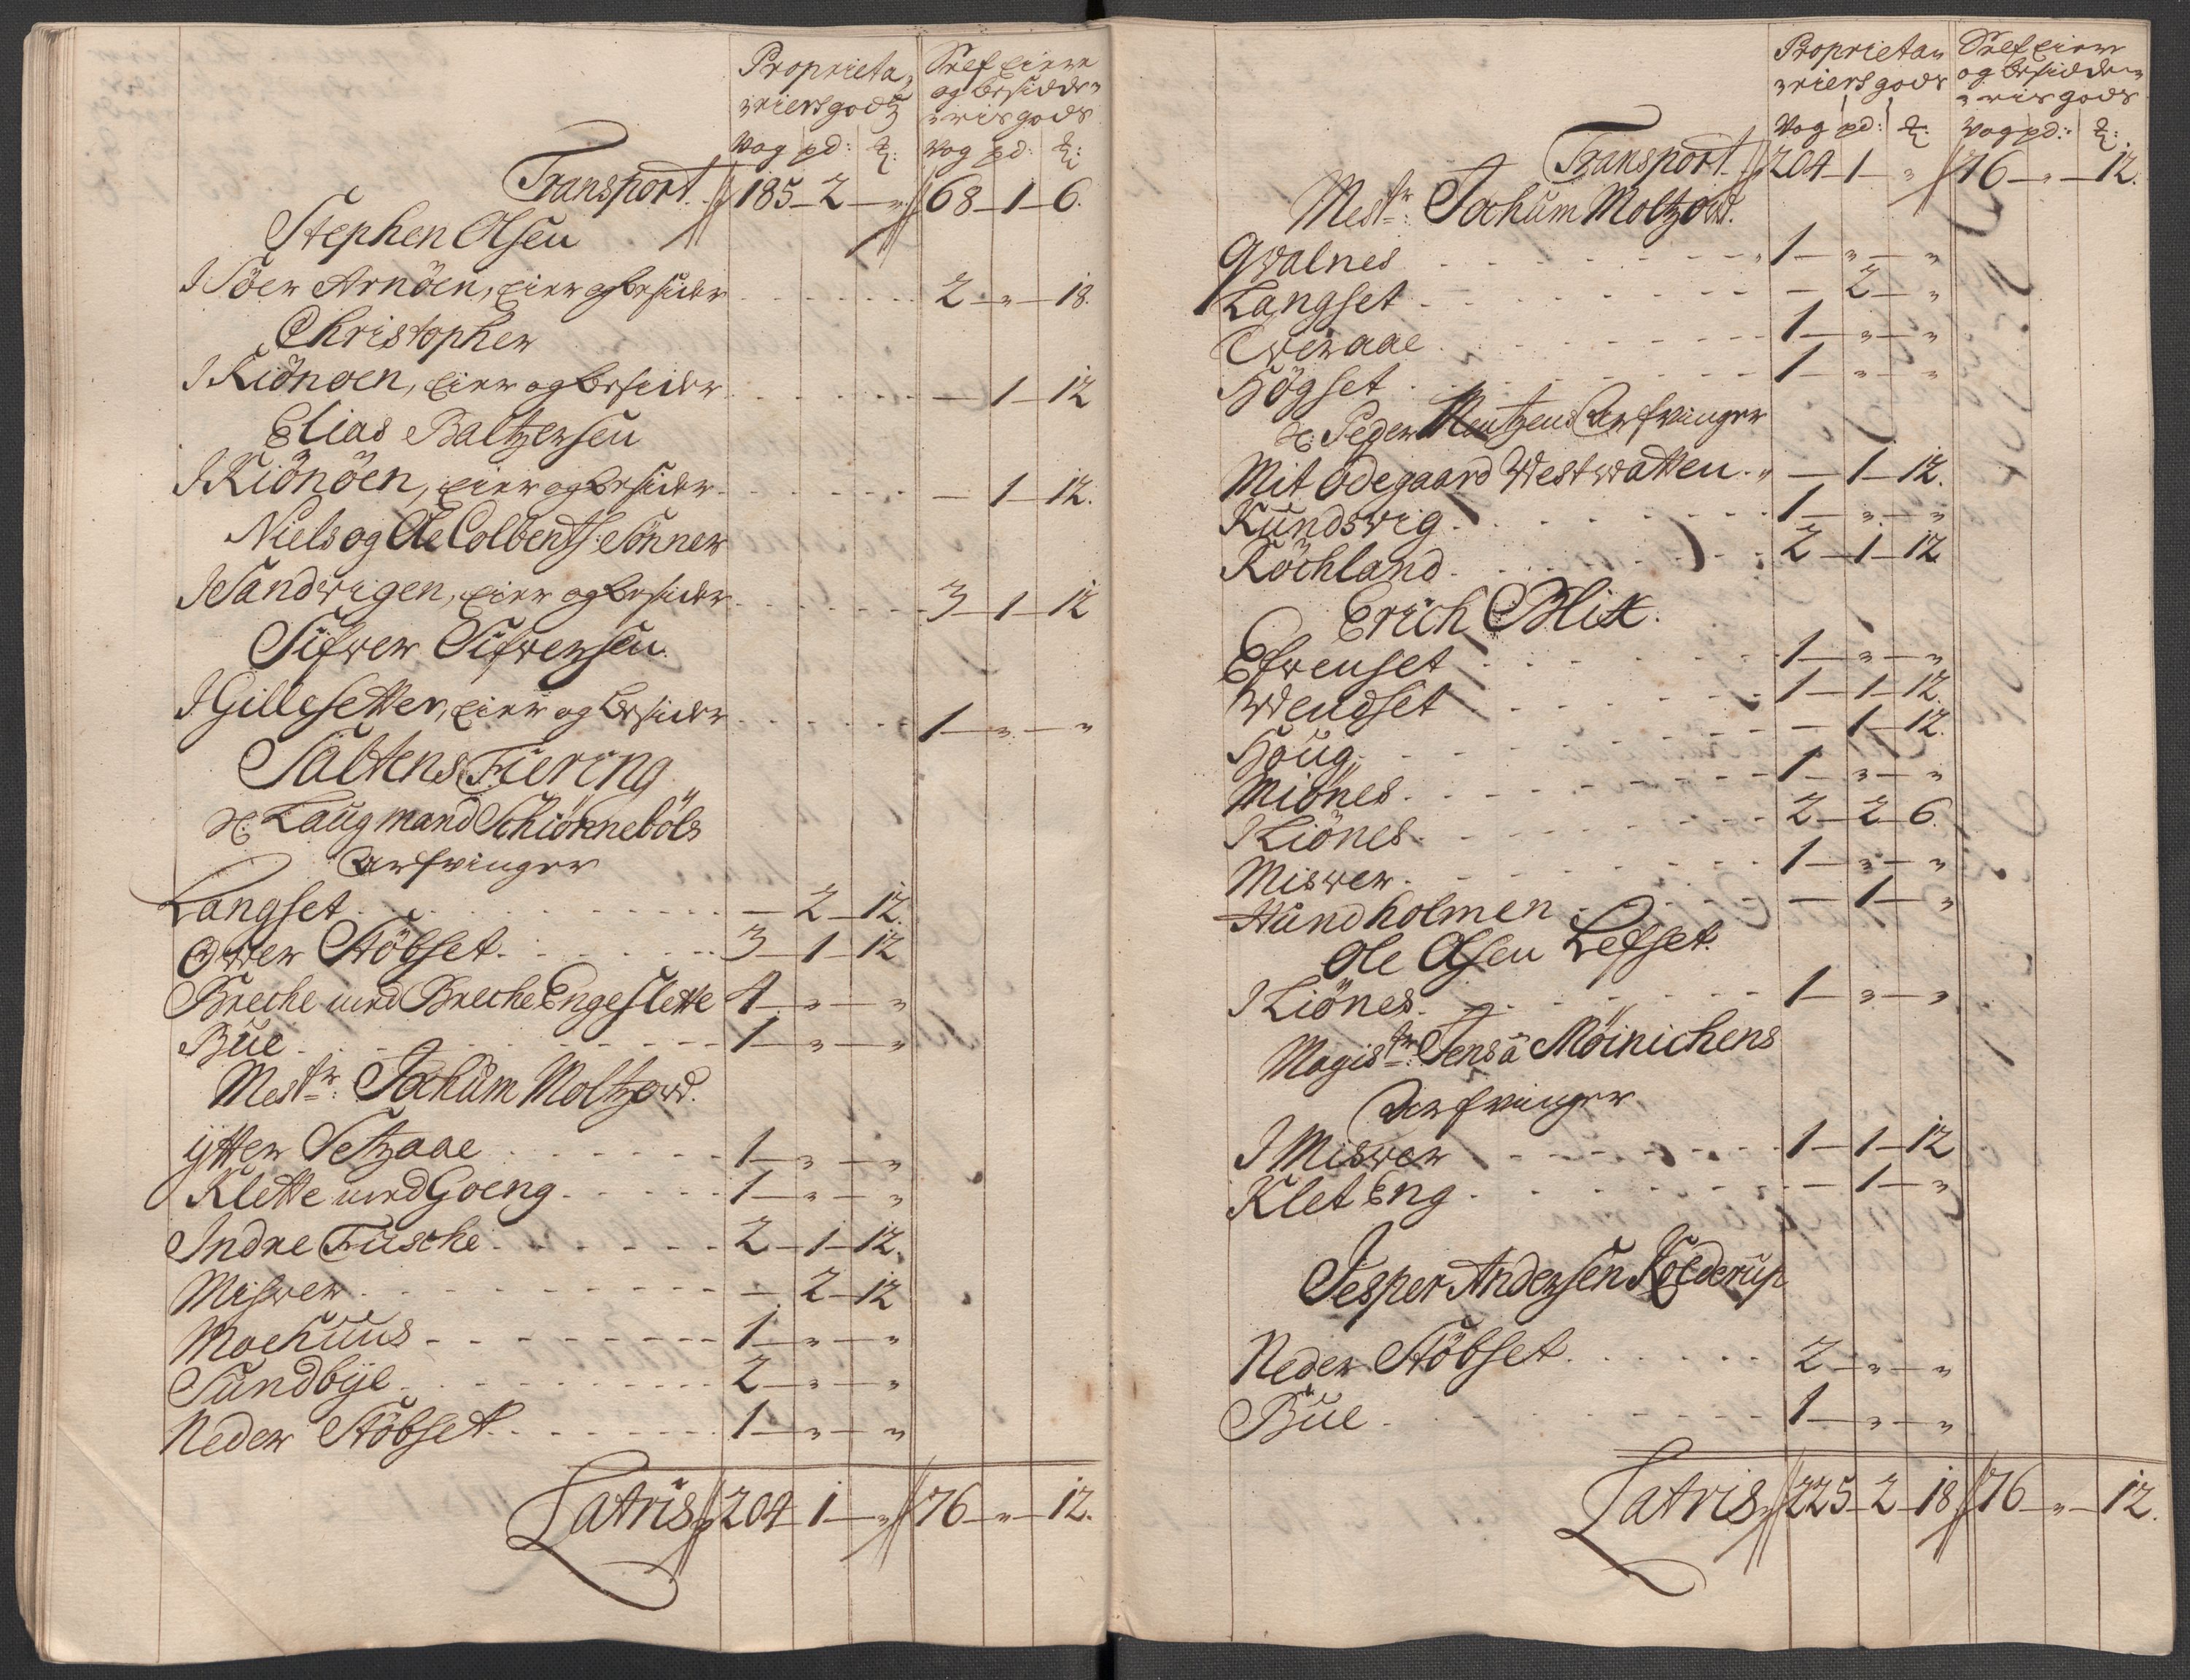 Proprieta-
riersgods
Self Eiere
og besidde-
ris gods
Vog pd: ℔: Vog pd: ℔:
Transport 185 - 2 - " 68 - 1 - 6.
Stephen Olsen
I Söer Arnöen, Eier og besider . . . . . . 2 - " - 18.
Christopher
I Kiönoen, Eier og besider . . . . . . - 1 - 12
Elias Baltzersen
I Kiönöen, Eier og besider . . . . . . - 1 - 12.
Niels og Ole Colbents: Sönner
I Sandvigen, Eier og besider . . . . . . 3 - 1 - 12
Sifwer Sifwersen
I Gillesetter, Eier og besider . . . . . . 1 - " - "
Saltens Fiering
Sl: Laugmand Schiönneböls
Arfvinger
Langset . . . . . . - 2 - 12.
Öwer Stöbset . . . . . . 3 - 1 - 12
Breche med Breche Engeslette 4 - " - "
Bue . . . . . . 1 - " - "
Mestr: Jochum Moltzow.
Ÿtter Setzaae . . . . . . 1 - " - "
Klette med Goeng . . . . . . 1 - " - "
Indre Fusche . . . . . . 2 - 1 - 12.
Miswer . . . . . . - 2 - 12
Moehuus . . . . . . 1 - " - "
Sundbÿe . . . . . . 2 - " - "
Neder Stöbset . . . . . . 1 - " - "
Latris 204 - 1 - " 76 - " - 12.
Proprieta-
riers gods
Self Eiere
og besidde-
ris gods
Vog pd: ℔: Vog pd: ℔:
Transport 204 - 1 - " 76 - " - 12.
Mestr: Jochum Moltzow.
Qvalnes . . . . . . 1 - " - "
Langset . . . . . . - 2 - "
Tveraae . . . . . . 1 - " - "
Högset . . . . . . 1 - " - "
Sl: Peder Arfvinger
Mit ödegaard Westwatten . - 1 - 12.
Kundsvig . . . . . . 1 - " - "
Röchland . . . . . . 2 - 1 - 12
Erich Blix.
Efvenset . . . . . . 1 - " - "
Wendset . . . . . . 1 - 1 - 12.
Houg . . . . . . - 1 - 12.
Miönes . . . . . . 1 - " - "
I Liönes . . . . . . 2 - 2 - 6.
Miswer . . . . . . 1 - " - "
Hundholmen . . . . . . - 1 - "
Ole Olsen Lefset.
I Liönes . . . . . . 1 - " - "
Magistr: Jens a Möinichens
Arfvinger
I Miswer . . . . . . 1 - 1 - 12
Klet Eng . . . . . . - 1 - "
Jesper Andersen Kolderup
Neder Stöbset . . . . . . 2 - " - "
Bue . . . . . . 1 - " - "
Latris 225 - 2 - 18 76 - " - 12.